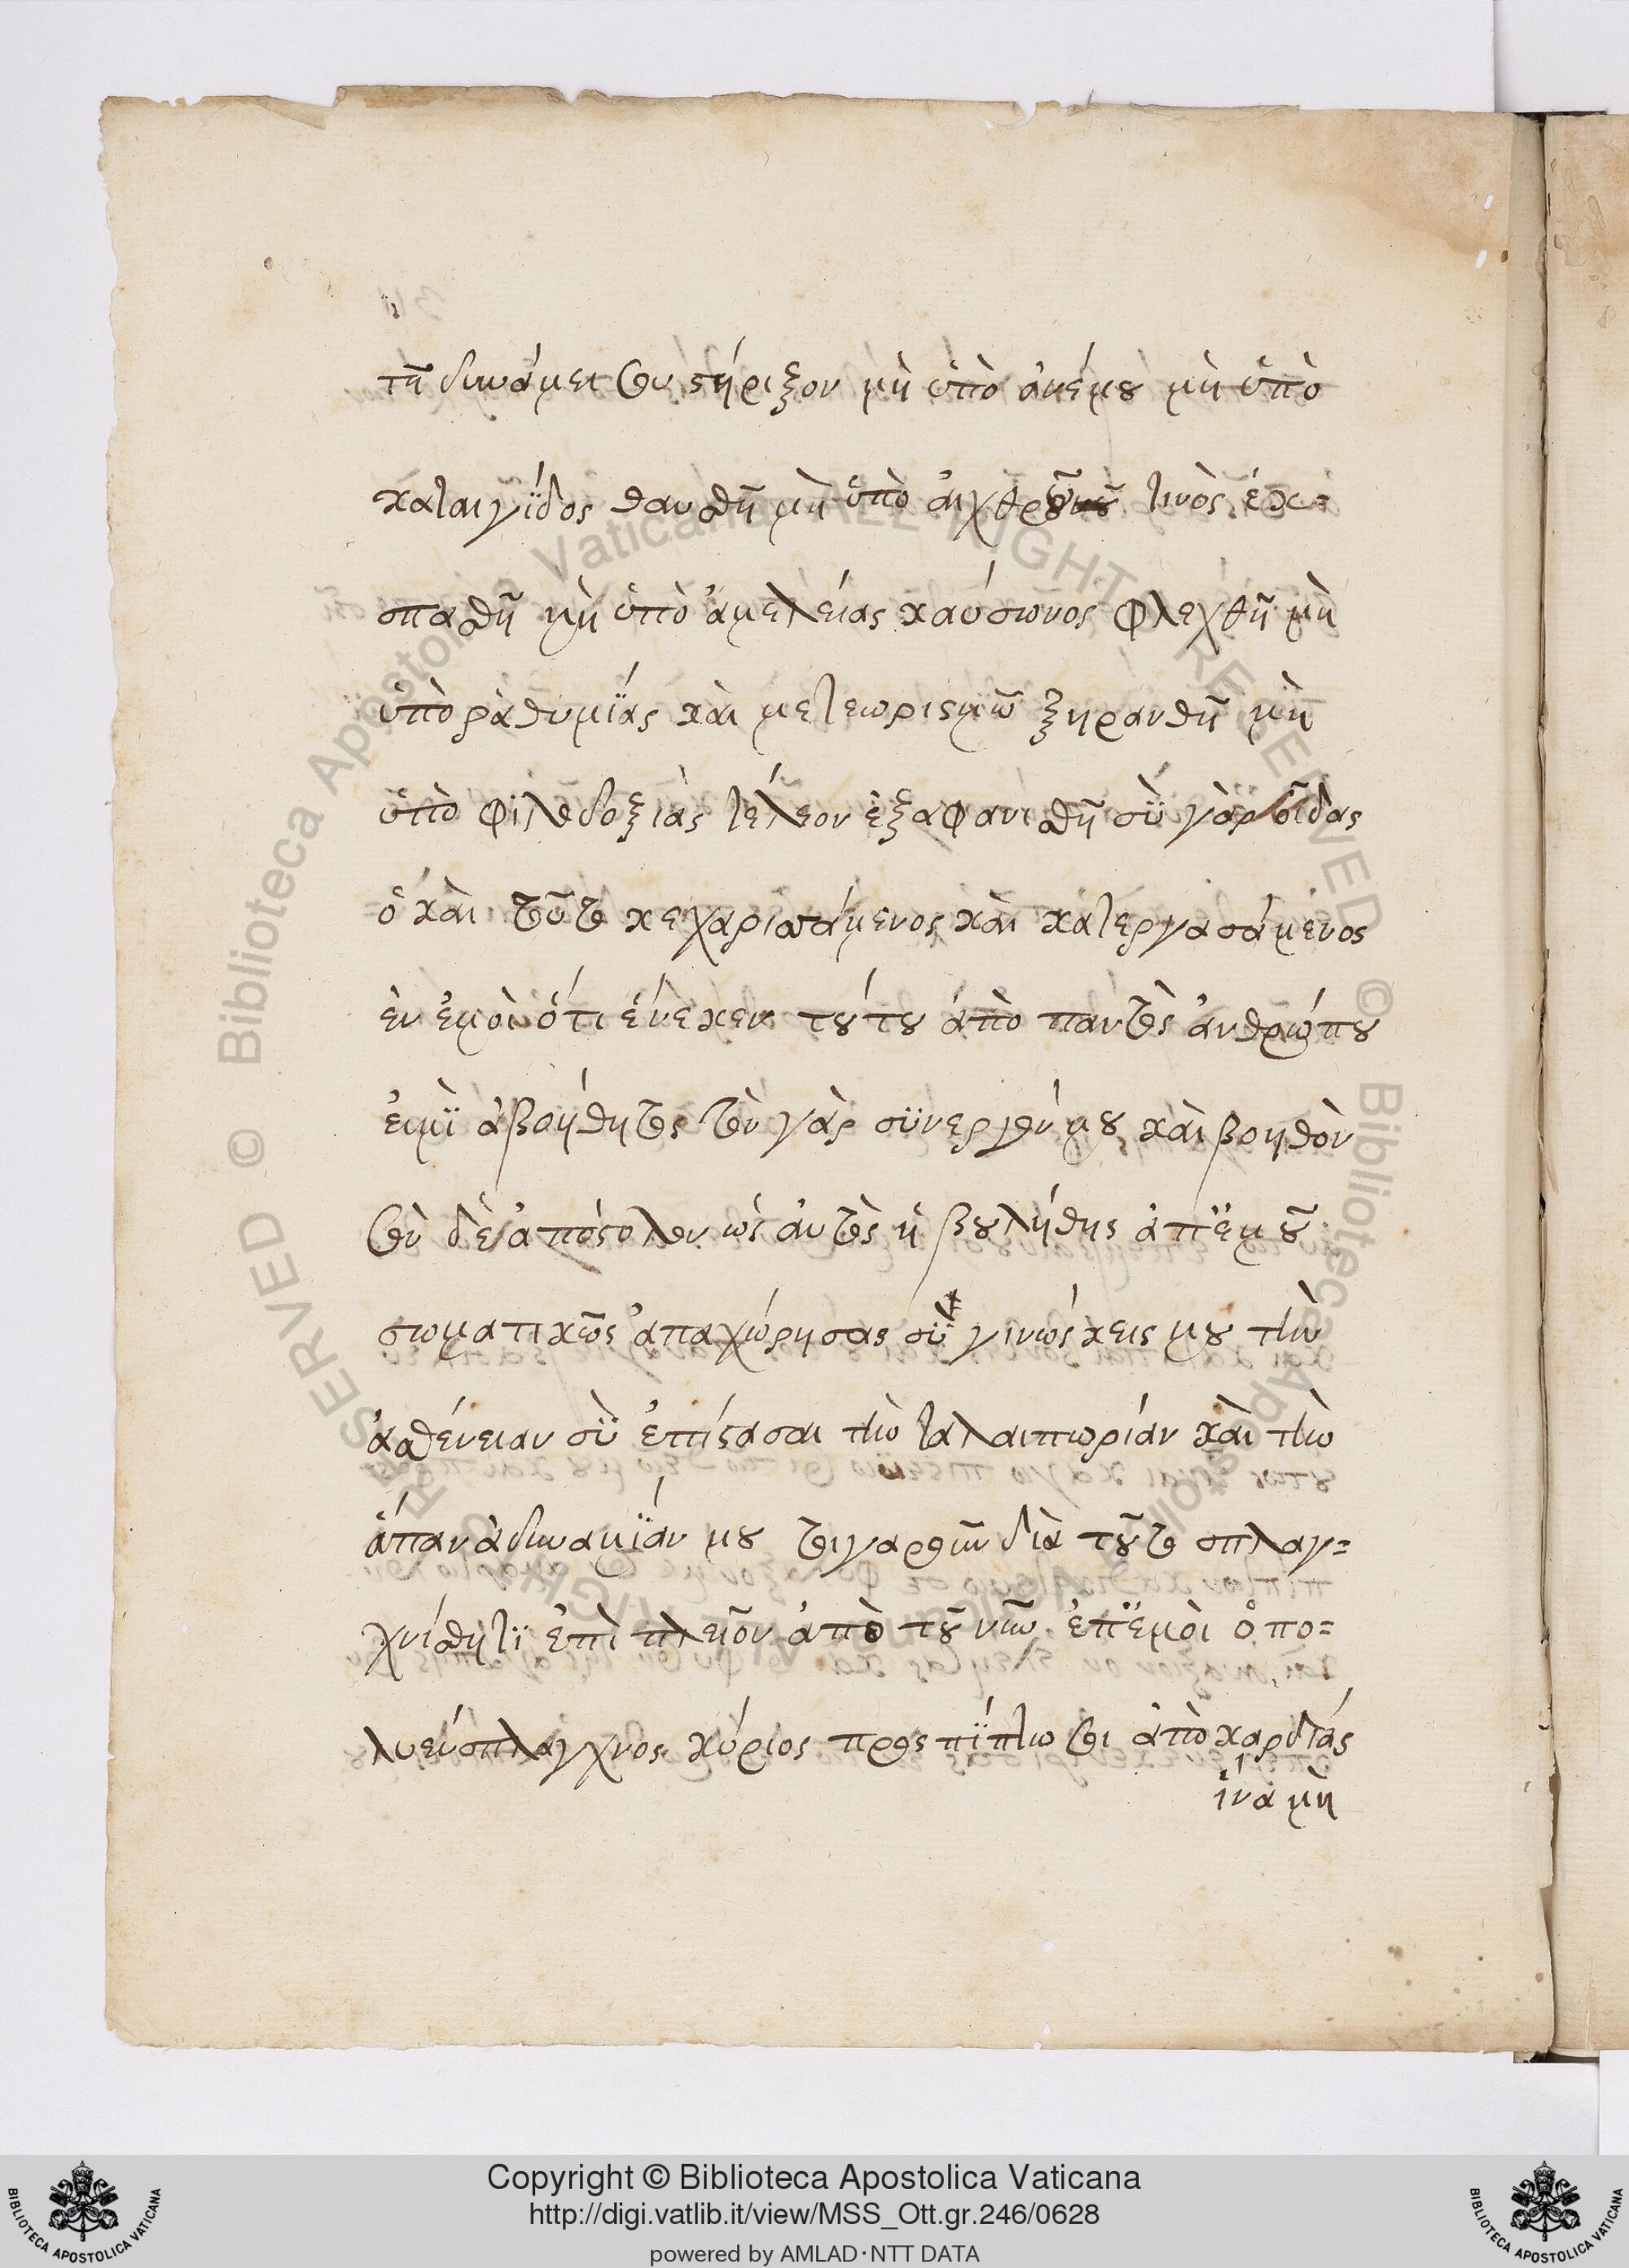 τῆ δυνάμει σου στήριξον μὴ ὑπὸ ἀνέμου μὴ ὑπὸ
καταιγΐδος θαυσθῆ μὴ ὑπὸ αἰχθροῦ τινὸς ἐκ=
σπασθῆ μὴ ὑπὸ ἀμελείας καύσωνος φλεχθῆ μὴ
ὑπὸ ραθυμΐας καὶ μετεωρισμῶ ξηρανθῆ μὴ
ὑπὸ φιλοδοξιὰς τέλεον ἐξαφανισθῆ σὺ γὰρ οἶδας
ὁ καὶ τοῦτο κεχαρισάμενος καὶ κατεργασάμενος
ἐν ἐμοὶ ὅτι ἕνεκεν τούτου ἀπὸ παντὸς ἀνθρώπου
ἐιμῒ ἀβοήθητος τὸν γὰρ σϋνεργόν μου καὶ βοηθὸν
σὸν δὲ ἀπόστολον ὡς αὐτὸς ἠβουλήθης ἀπ' ἐμοῦ
σωματικῶς ἀπαχώρησας σῢ γινώσκεις μου τὴν
ἀσθένειαν σῢ ἐπίστασαι τὴν ταλαιπωρίαν καὶ τὴν
ἅπαν ἀδυναμΐαν μου τοιγαροῦν διὰ τοῦτο σπλαγ=
χνίσθητϊ ἐπὶ πλεῖον ἀπὸ τοῦ νῦν ἐπ' ἐμοὶ ὁ πο=
λυεύσπλαγχνος κύριος προσπΐπτω σοι ἀπὸ καρδίας
ἵνα μὴ
Copyright © Biblioteca Apostolica Vaticana
http://digi.vatlib.it/view/MSS_Ott.gr.246/0628
powered by AMLAD·NTT DATA